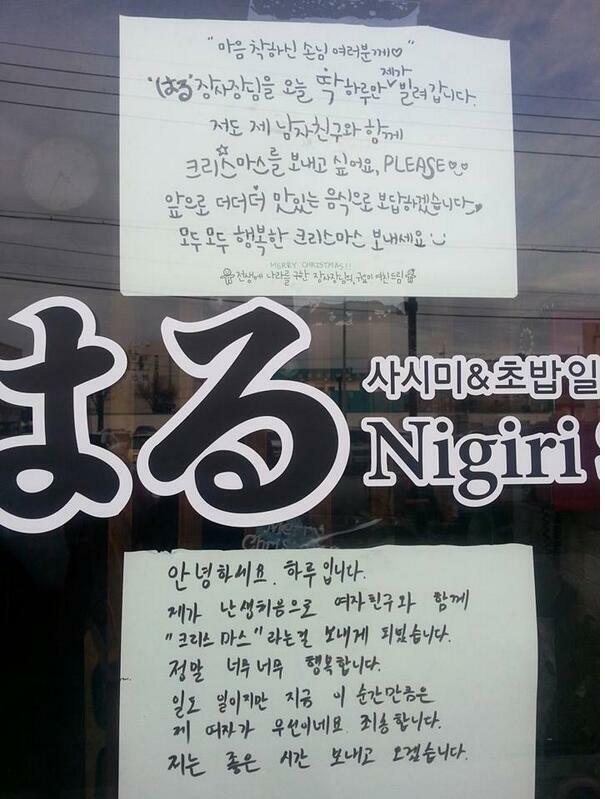 "마음 착하신 손님 여러분께♡"
'はる' 장사장님을 오늘 딱 하루만 제가 빌려갑니다.
저도 제 남자친구와 함께
크리스마스를 보내고 싶어요, PLEASE
앞으로 더더더 맛있는 음식으로 보답하겠습니다
모두모두 행복한 크리스마스 보내세요
MERRY CHRISTMAS!!
전생에 나라를 구한 장사장님의, 귀요미 여친드림
はる
사시미&초밥일
Nigiri
Merry
안녕하세요. 하루입니다.
제가 난생처음으로 여자친구와 함께
"크리스마스"라는걸 보내게 되었습니다.
정말 너무너무 행복합니다.
일도 일이지만 지금 이 순간만큼은
제 여자가 우선이네요. 죄송합니다.
저는 좋은 시간 보내고 오겠습니다.